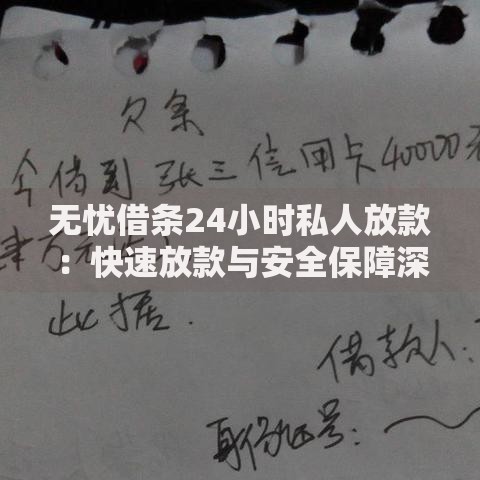 欠条
今借到张三信用卡40000元
无忧借条24小时私人放款
：快速放款与安全保障深
肆万元
此据.
借款人：
身份证号：